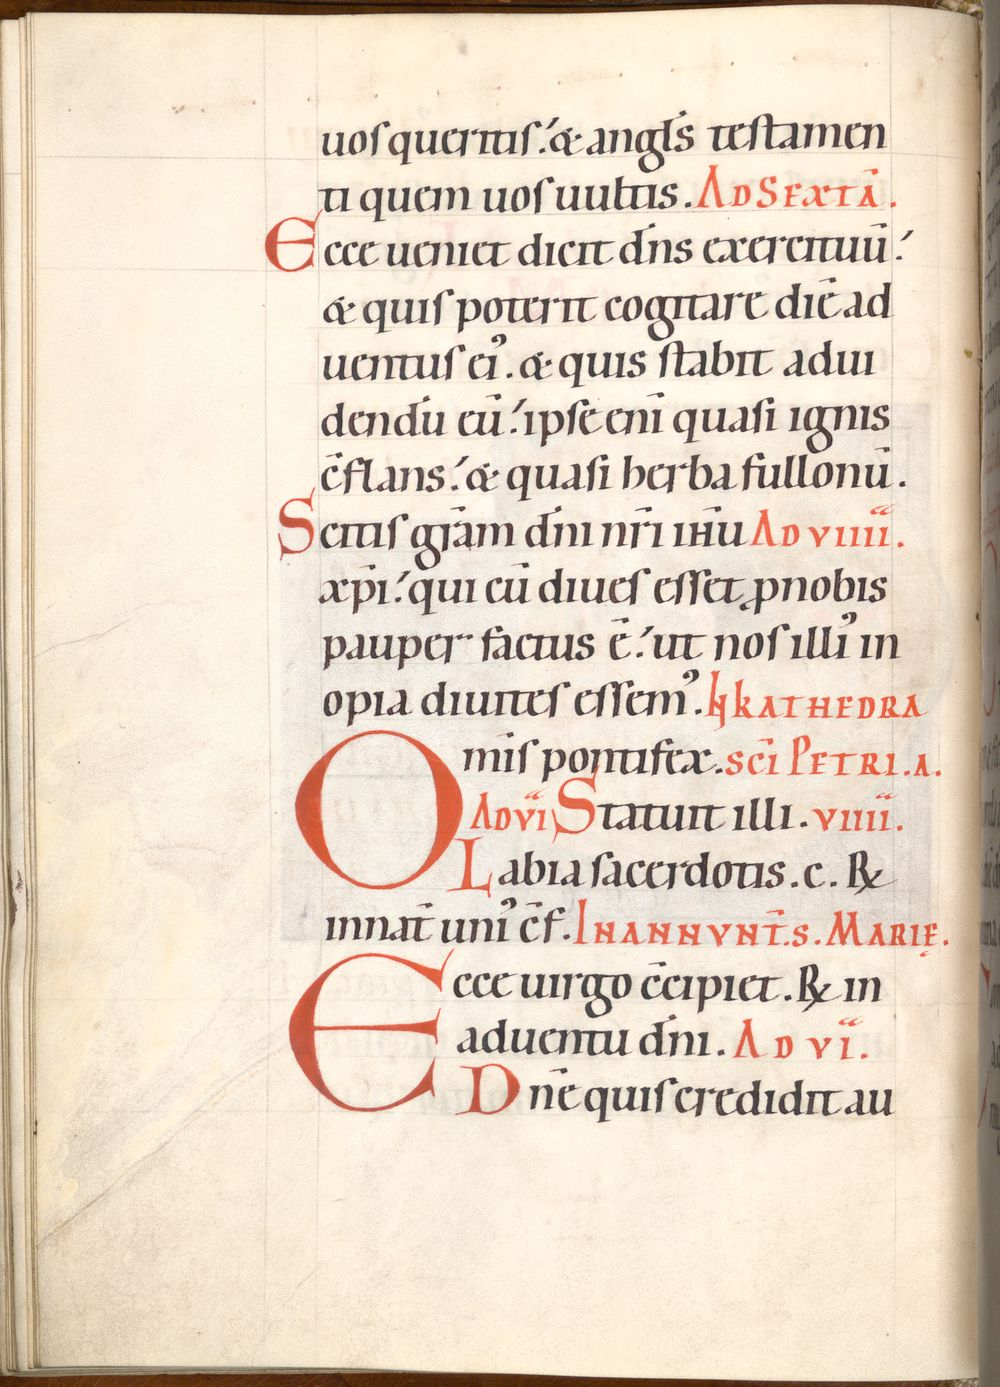 uos queritis. & angl̄s testamen
ti quem uos uultis. AD SEXTĀ.
Ecce ueniet dicit dn̄s exercituū.
& quis poterit cogitare diē ad
uentus ei᾽. & quis stabit adui
dendū eū. ipse enī quasi ignis
c̄flans. & quasi herba fullonū.
Scitis grām dn̄i nr̄i ih̄u AD VIIII.
xp̄i. qui cū diues esset ꝓnobis
pauper factus ē. ut nos illi᾽ in
opia diuites essem᾽. IN KATHEDRA
Omīs pontifex. SC̄I PETRI. A.
AD VI Statuit illi. VIIII.
Labia sacerdotis. c. ℞
innat̄ uni᾽ c̄f. IN ANNVNT̄. S. MARIĘ.
Ecce uirgo c̄cipiet. ℞ in
aduentu dn̄i. AD VI.
Dn̄e quis credidit au